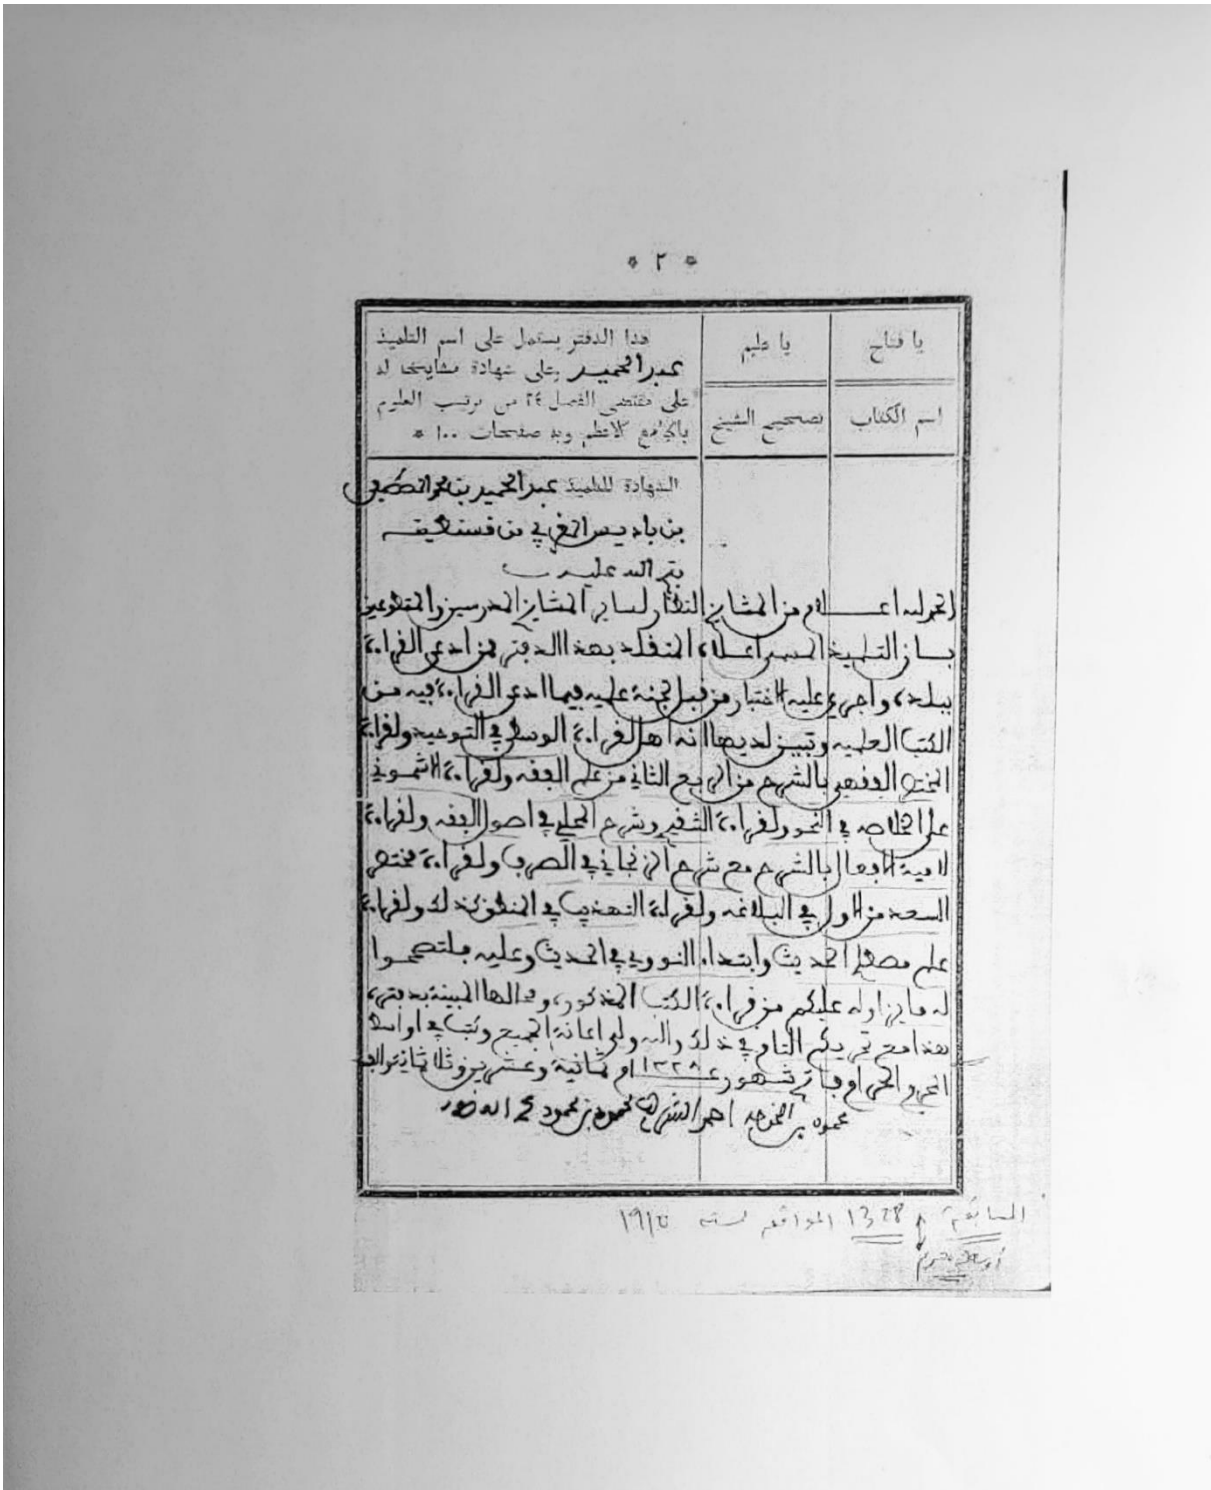 * ٢ *
يا فتاح
يا عليم
هذا الدفتر يشتمل على اسم التلميذ
عبد الحميد وعلى شهادة مشايخه له
على مقتضى الفصل ٢٤ من ترتيب العلوم
بالجامع الاعظم وبه صفحات ١٠٠ *
اسم الكتاب
تصحيح الشيخ
الشهادة للتلميذ عبد الحميد بن محمد المصطفى
بن باديس المغربي من قسنطينة
الحمد لله اعلام من المشايخ النظار لساير المشايخ المدرسين والمتطوعين
بان التلميذ المسمى اعلاه المتقلد بهذا الدفتر ممن ادعى القراءة
ببلده واجري عليه الاختبار من قبل لجنة علميه فيما ادعى القراءة فيه من
الكتب العلميه وتبين لديها انه اهل لقراءة الوسطى في التوحيد ولقراءة
المختصر الفقهي بالشرح من الربع الثاني من علم الفقه ولقراءة الاشموني
على الخلاصه في النحو ولقراءة الشرح المحلي في اصول الفقه ولقراءة
لامية الافعال بالشرح مع شرح الزنجاني في الصرف ولقراءة مختصر
السعد من الاول في البلاغه ولقراءة التهذيب في المنطق كذلك ولقراءة
علم مصطلح الحديث وابتداء النووي في الحديث وعليه فلتصححوا
له ما يزاوله عليكم من قراءة الكتب المذكوره ومحالها المبينة بدفتره
هذا مع تحريكم التام في ذلك والله ولي اعانة الجميع وكتب في اواسط
المحرم الحرام فاتح شهور عـ١٣٢٨ـام ثمانية وعشرين وثلاثمائة والف
محمود بن الخوجه احمد الشريف محمود بن محمود
1328 الموافق لسنة ١٩١٠
أوسط محرم